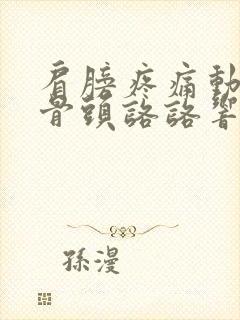 肩膀疼痛動
骨頭詻詻響
孫漫